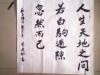 人生天地之间
若白駒过隙
忽然而已